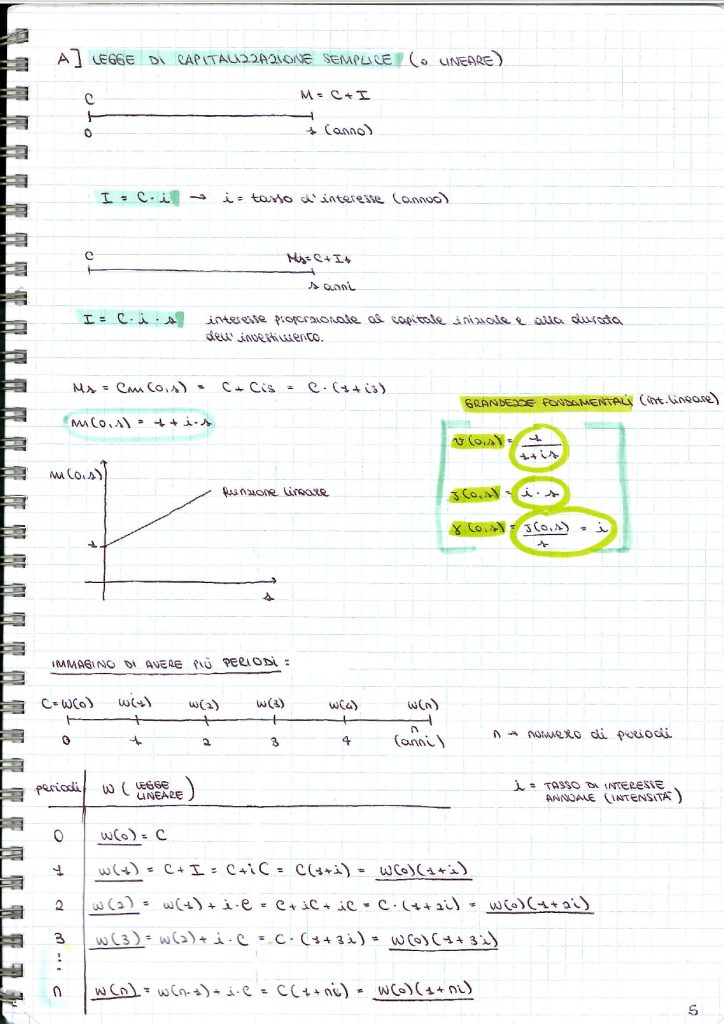 A] LEGGE DI CAPITALIZZAZIONE SEMPLICE (o LINEARE)
C M = C + I
0 1 (anno)
I = C·i → i = tasso d'interesse (annuo)
C Ms = C + Is
s anni
I = C·i·s interesse proporzionale al capitale iniziale e alla durata
dell'investimento.
Ms = Cm(0,s) = C + Cis = C·(1+is)
m(0,s) = 1 + i·s
GRANDEZZE FONDAMENTALI (int. lineare)
v(0,s) = 1/(1+is)
J(0,s) = i·s
γ(0,s) = J(0,s)/s = i
m(0,s)
funzione lineare
1
s
IMMAGINO DI AVERE PIÙ PERIODI:
C=W(0) W(1) W(2) W(3) W(4) W(n)
0 1 2 3 4 n (anni)
n → numero di periodi
periodi W (LEGGE LINEARE)
i = TASSO DI INTERESSE
ANNUALE (INTENSITÀ)
0 W(0) = C
1 W(1) = C + I = C + iC = C(1+i) = W(0)(1+i)
2 W(2) = W(1) + i·C = C + iC + iC = C·(1+2i) = W(0)(1+2i)
3 W(3) = W(2) + i·C = C·(1+3i) = W(0)(1+3i)
⋮
n W(n) = W(n-1) + i·C = C(1+ni) = W(0)(1+ni)
5